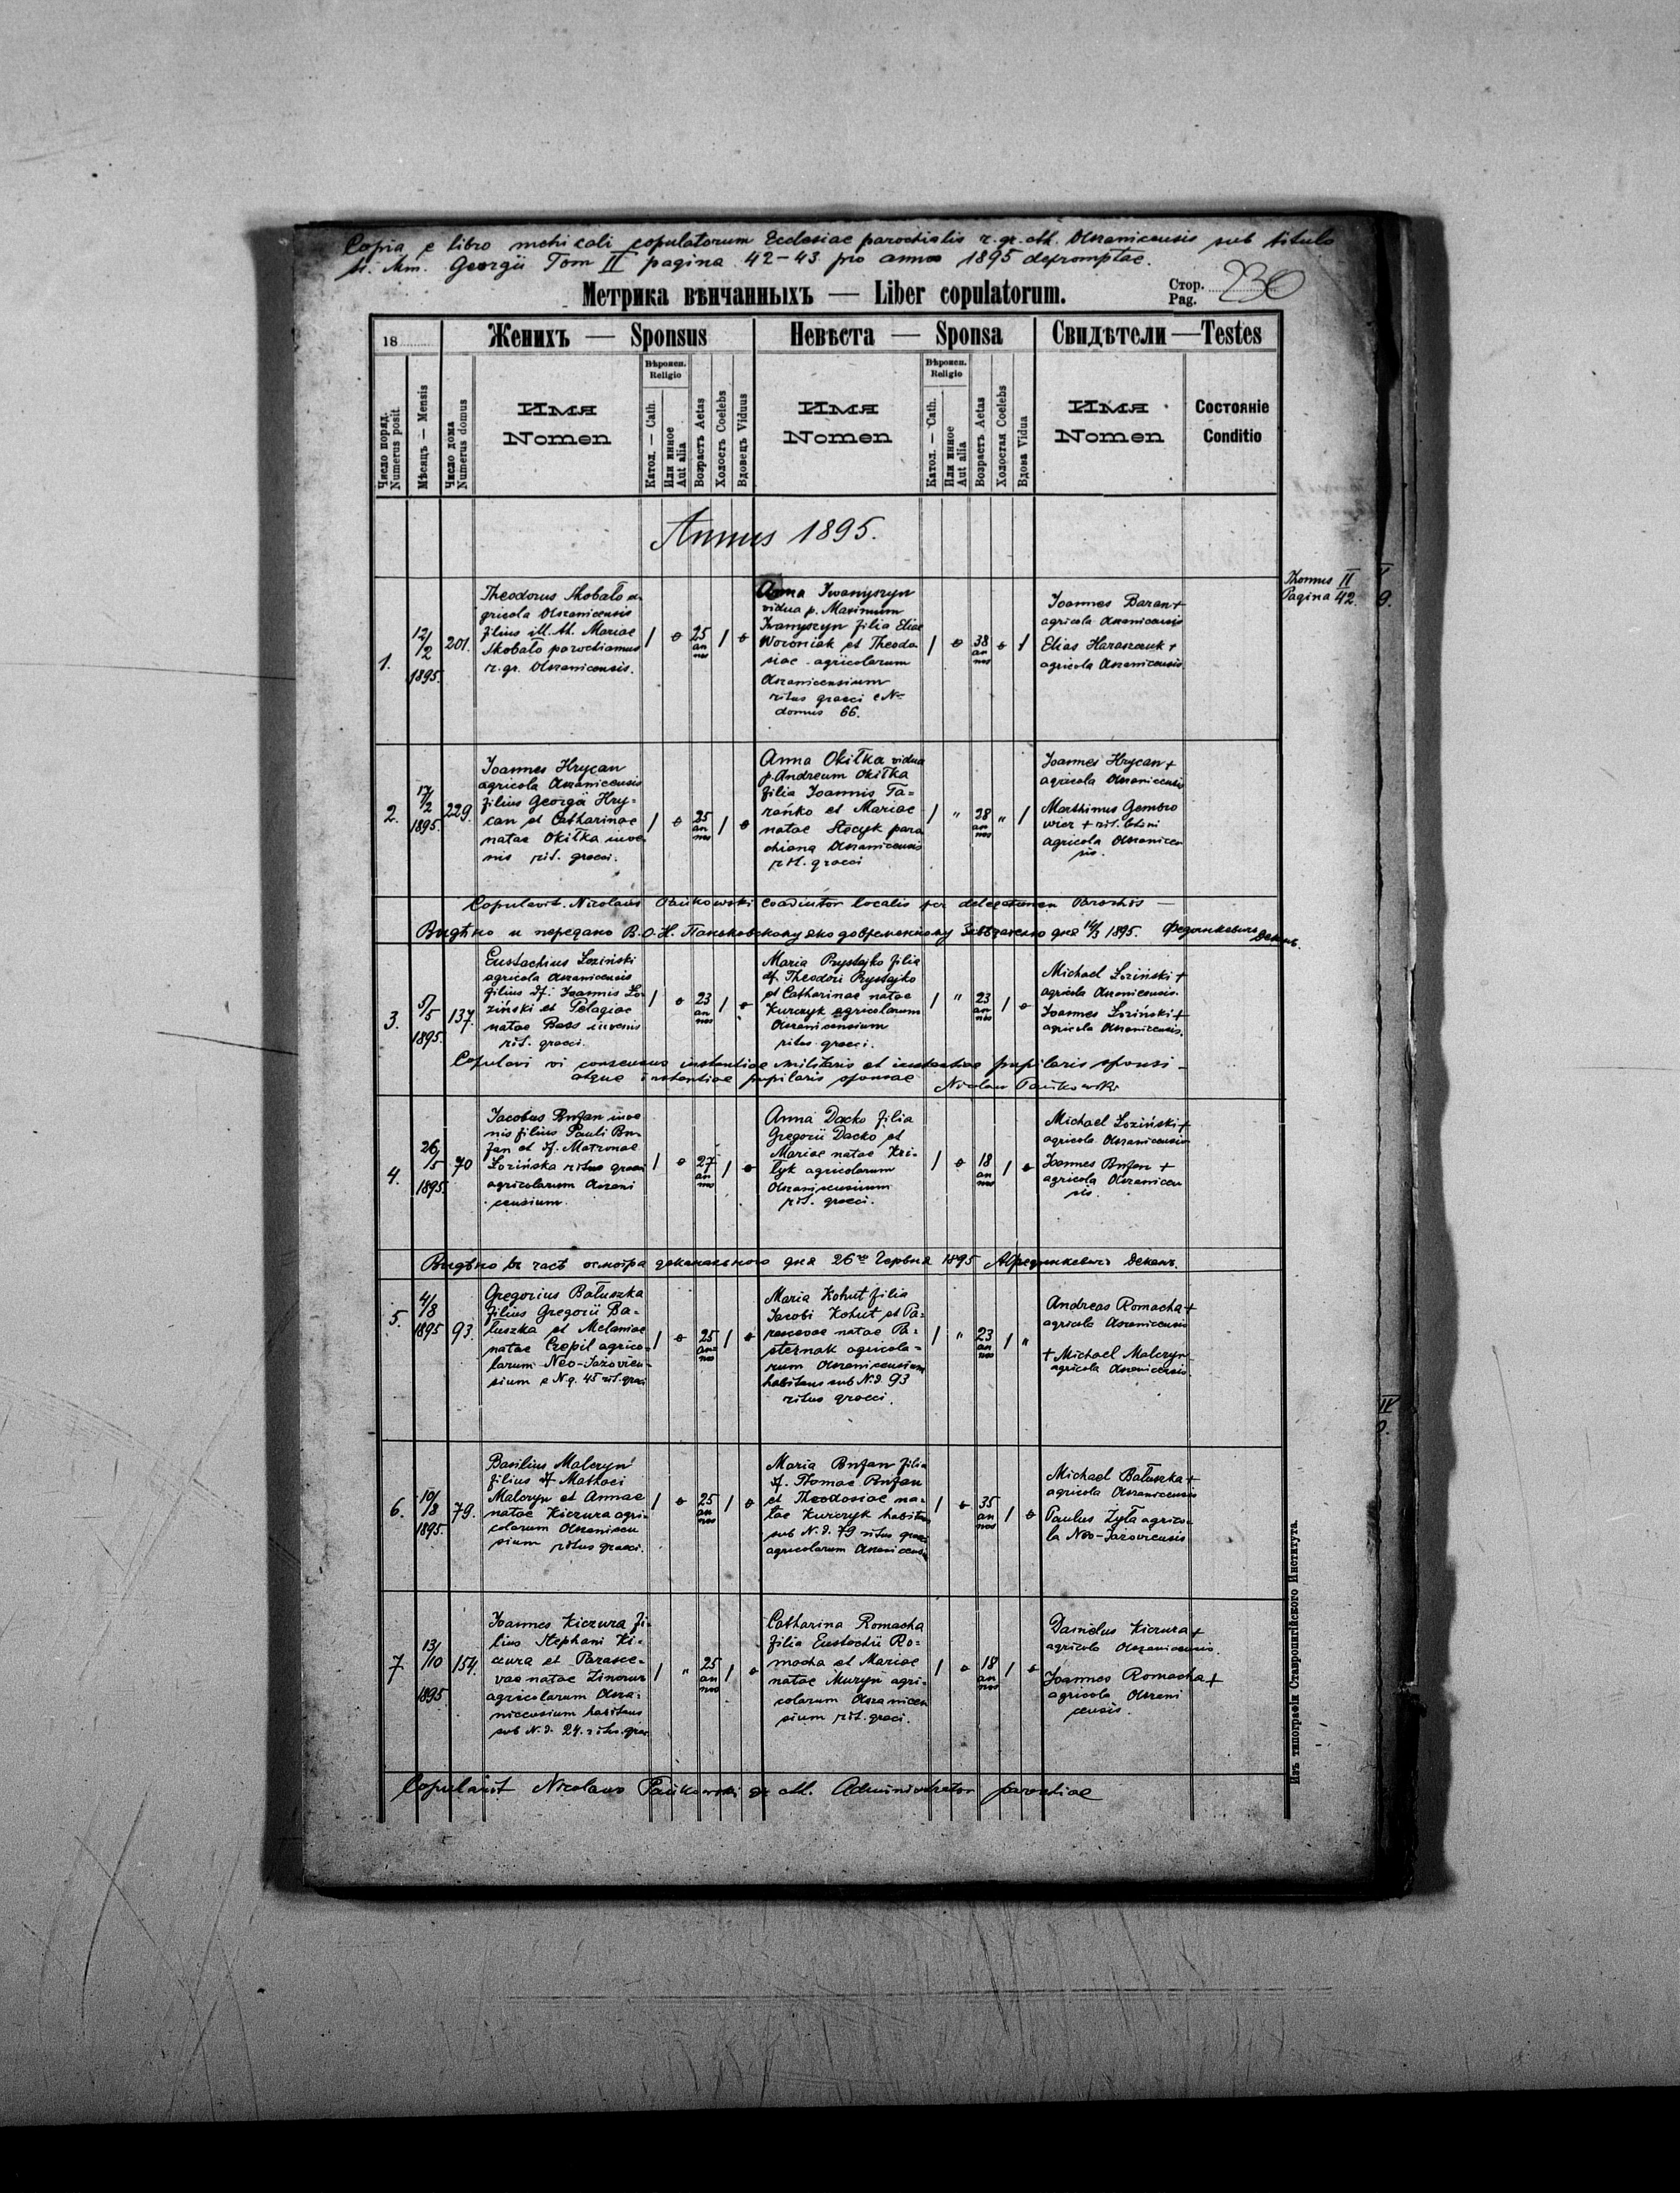 Copia e libro metricali copulatorum Ecclesiae parochialis r. gr. cth. Olszanicensis sub titulo
St. Mm. Georgii Tom II pagina 42-43 pro anno 1895 depromptae.
Метрика вѣнчанныхъ — Liber copulatorum.
Стор.
Pag. 230
18
Женихъ — Sponsus
Невѣста — Sponsa
Свидѣтели — Testes
Число поряд.
Numerus posit.
Мѣсяць — Mensis
Число дома
Numerus domus
Имя
Nomen
Вѣроисп.
Religio
Катол. — Cath.
Или инное
Aut alia
Возрастъ Aetas
Холостъ Coelebs
Вдовецъ Viduus
Имя
Nomen
Вѣроисп.
Religio
Катол. — Cath.
Или инное
Aut alia
Возрастъ Aetas
Холостая Coelebs
Вдова Vidua
Имя
Nomen
Состояніе
Conditio
Annus 1895.
Thomus II
Pagina 42.
1.
12/2
1895.
201.
Theodorus Skobało a-
gricola Olszanicensis
filius ill. th. Mariae
Skobało parochianus
r. gr. Olszanicensis.
1 0 25 an nos 1 0
Anna Iwanyszyn
vidua p. Maximum
Iwanyszyn filia Eliae
Woroniak et Theodo
siae agricolarum
Olszanicensium
ritus graeci e N-
domus 66.
1 0 38 an nos 0 1
Joannes Baran +
agricola Olszanicensis
Elias Haraszczuk +
agricola Olszanicensis
2.
17/2
1895.
229.
Joannes Hrycan
agricola Olszanicensis
filius Georgii Hry-
can et Catharinae
natae Okiłka iuve
nis rit. graeci.
1 0 25 an nos 1 0
Anna Okiłka vidua
p. Andreum Okiłka
filia Joannis Ta-
rańko et Mariae
natae Stecyk paro
chiana Olszanicensis
rit. graeci
1 " 28 an nos " 1
Joannes Hrycan +
agricola Olszanicensis
Marthinus Gembro
wicz + rit. latini
agricola Olszanicen
sis.
Copulavit Nicolaus Pańkowski coadiutor localis per delegationem Parochis —
Видѣно и передано В. О. Н. Паньковскому яко довременному Завѣдателю дня 14/3 1895. Федынкевичъ Деканъ.
3.
5/5
1895.
137.
Eustachius Łoziński
agricola Olszanicensis
filius df. Joannis Ło-
ziński et Pelagiae
natae Bass iuvenis
rit. graeci.
1 0 23 an nos 1 0
Maria Prystajko filia
df. Theodori Prystajko
et Catharinae natae
Kurczyk agricolarum
Olszanicensium
ritus graeci.
1 " 23 an nos 1 0
Michael Łoziński +
agricola Olszanicensis.
Joannes Łoziński +
agricola Olszanicensis.
Copulavi vi consensus instantiae militaris et instantiae pupilaris sponsi —
atque instantiae pupilaris sponsae Nicolaus Pańkowski
4.
26/5
1895.
70
Jacobus Bufan iuve
nis filius Pauli Bu-
fan et df. Matronae
Łozińska ritus graeci
agricolarum Olszani
censium.
1 0 27 an nos 1 0
Anna Dacko filia
Gregorii Dacko et
Mariae natae Kri-
łyk agricolarum
Olszanicensium
rit. graeci.
1 0 18 an nos 1 0
Michael Łoziński +
agricola Olszanicensis
Joannes Bufan +
agricola Olszanicen
sis.
Видѣно въ часѣ осмотра деканального дня 26го Червня 1895 А Федынкевичъ Деканъ.
5.
4/8
1895
93.
Gregorius Bałuszka
filius Gregorii Ba-
łuszka et Melaniae
natae Czepil agrico-
larum Neo-Jazovien-
sium e N. q. 45 rit. graeci
1 0 25 an nos 1 0
Maria Kohut filia
Jacobi Kohut et Pa-
rascevae natae Pa-
sternak agricola-
rum Olszanicensium
habitans sub N. d 93
ritus graeci.
1 " 23 an nos 1 "
Andreas Romacha +
agricola Olszanicensis
+ Michael Malczyn
agricola Olszanicensis.
6.
10/8
1895.
79.
Basilius Malczyn
filius df Mathaei
Malczyn et Annae
natae Kiczura agri-
colarum Olszanicen
sium ritus graeci.
1 0 25 an nos 1 0
Maria Bufan filia
df. Thomae Bufan
et Theodosiae na-
tae Kurczyk habitans
sub N. d. 79 ritus graeci
agricolarum Olszanicensium
1 0 35 an nos 1 0
Michael Bałuszka +
agricola Olszanicensis
Paulus Zyła agrico-
la Neo-Jazoviensis
7.
13/10
1895.
154.
Joannes Kiczura fi-
lius Stephani Ki-
czura et Parasce-
vae natae
agricolarum Olsza-
nicensium habitans
sub N. d. 24. ritus grae
1 " 25 an nos 1 0
Catharina Romacha
filia Eustachii Ro-
macha et Mariae
natae Muryn agri-
colarum Olszanicen
sium rit. graeci.
1 0 18 an nos 1 0
Danielus Kiczura +
agricola Olszanicensis.
Joannes Romacha +
agricola Olszani
censis.
Copulavit Nicolaus Pańkowski gr. cth. Administrator parochiae
Изъ типографіи Ставропигійского Института.